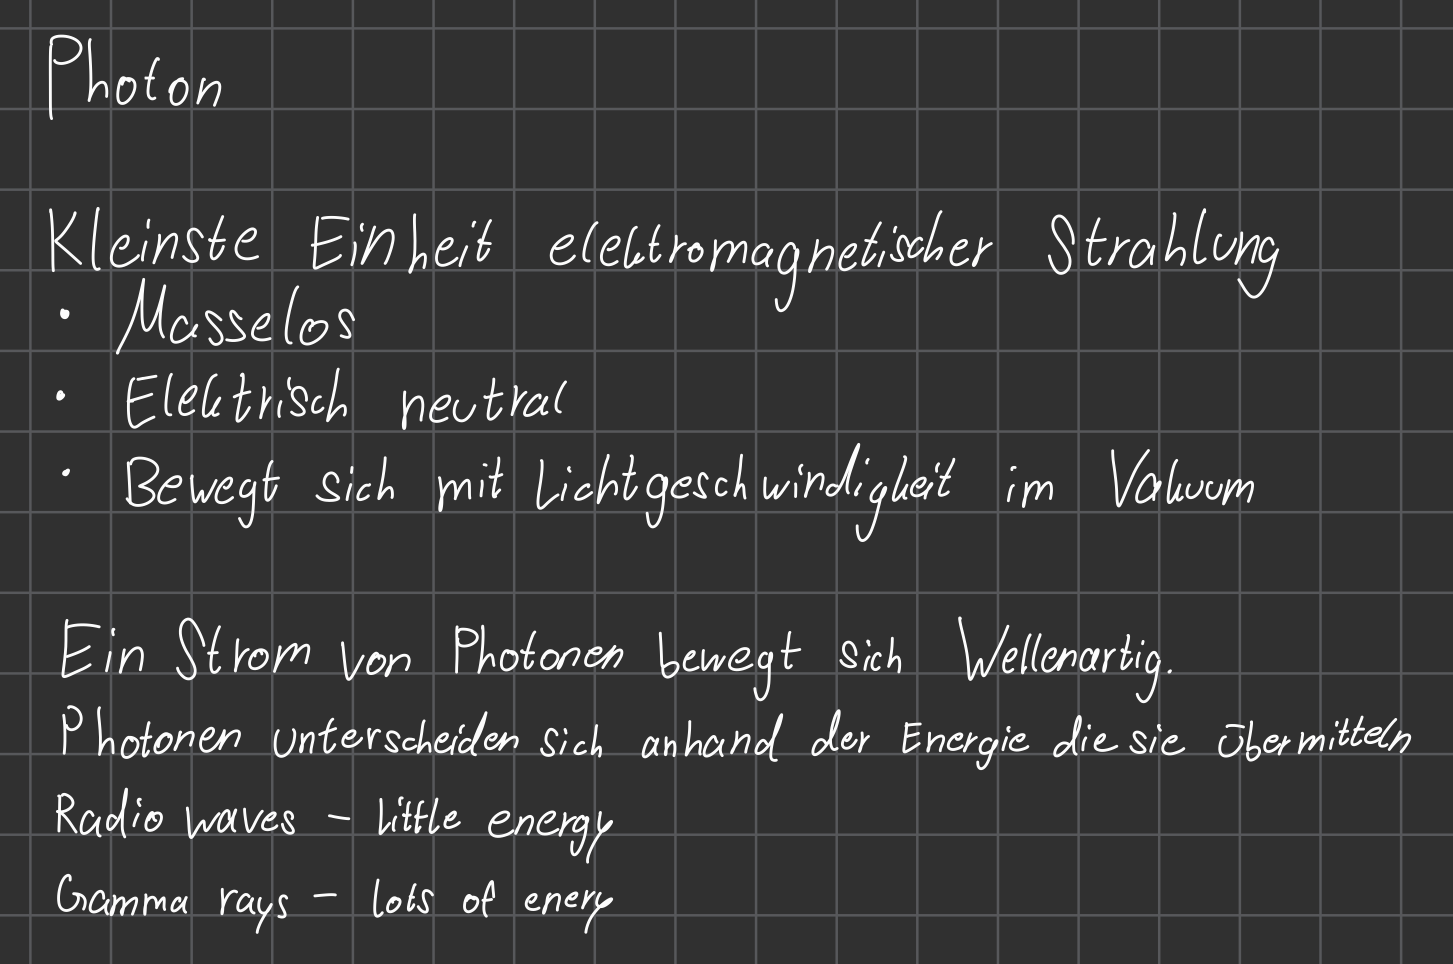 Photon
Kleinste Einheit elektromagnetischer Strahlung
• Masselos
• Elektrisch neutral
• Bewegt sich mit Lichtgeschwindigkeit im Vakuum
Ein Strom von Photonen bewegt sich Wellenartig.
Photonen unterscheiden sich anhand der Energie die sie übermitteln
Radio waves - little energy
Gamma rays - lots of enery